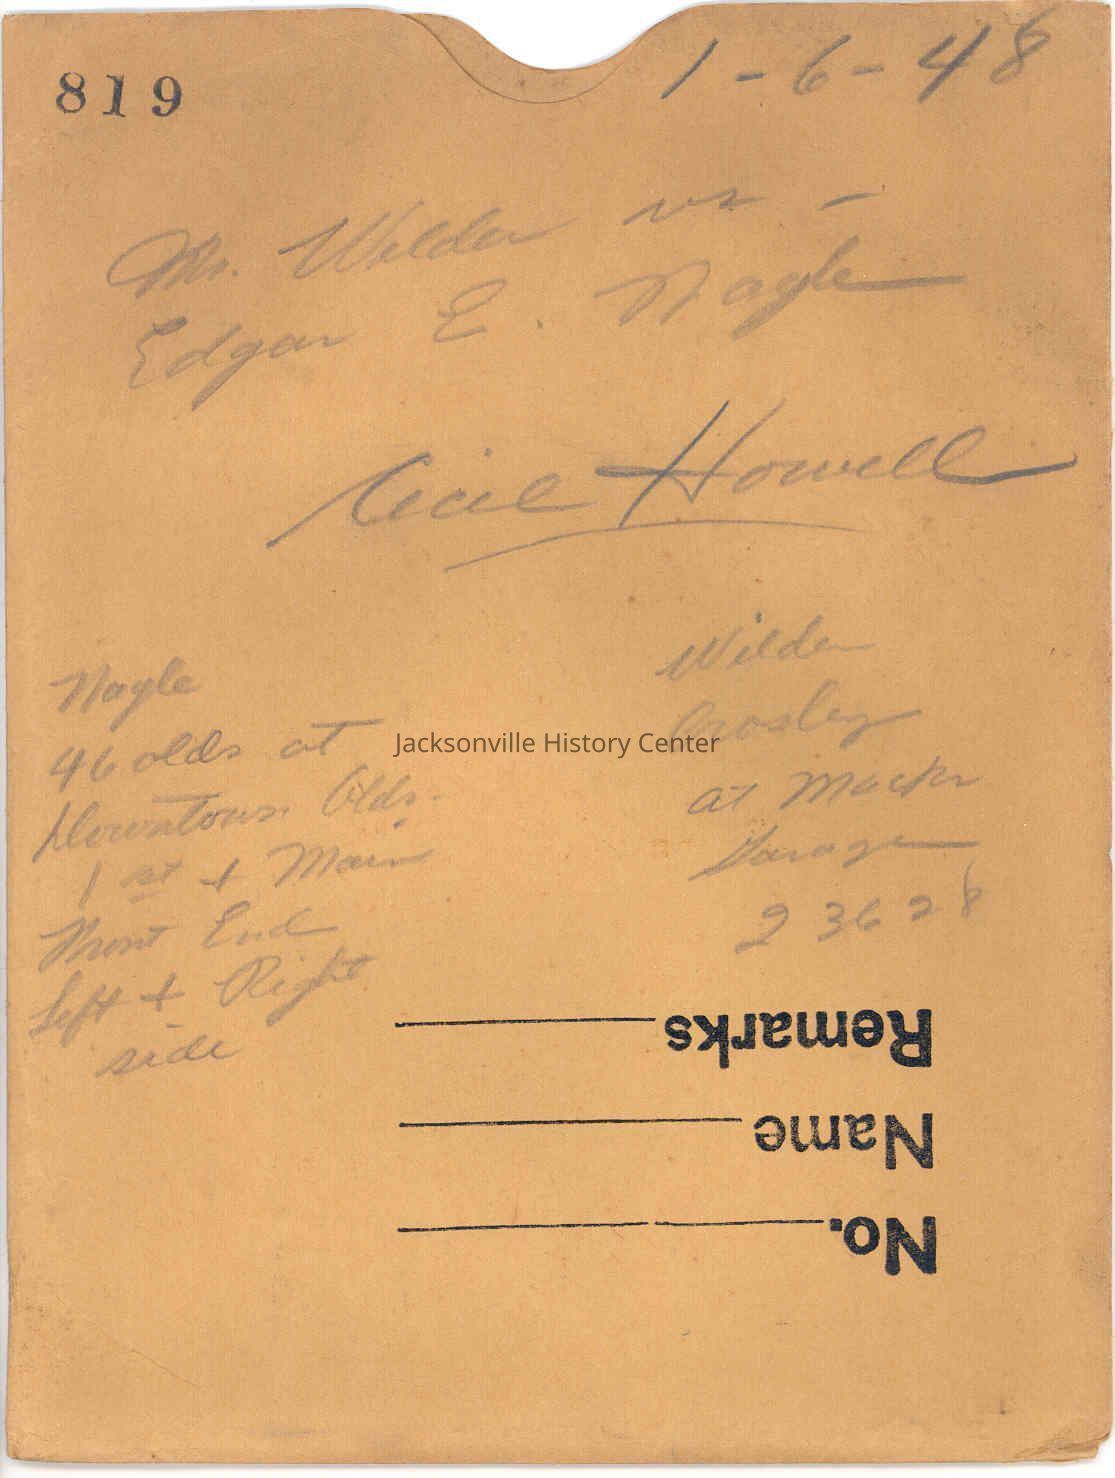 819
1-6-48
Mr. Wilder vs -
Edgar E. Nagle
Cecil Howell
Nagle
46 olds at
Downtown Olds.
1 st + Main
Front End
Left + Right
side
Wilder
Crosley
at
Garage
2 3628
Jacksonville History Center
Remarks
Name
No.